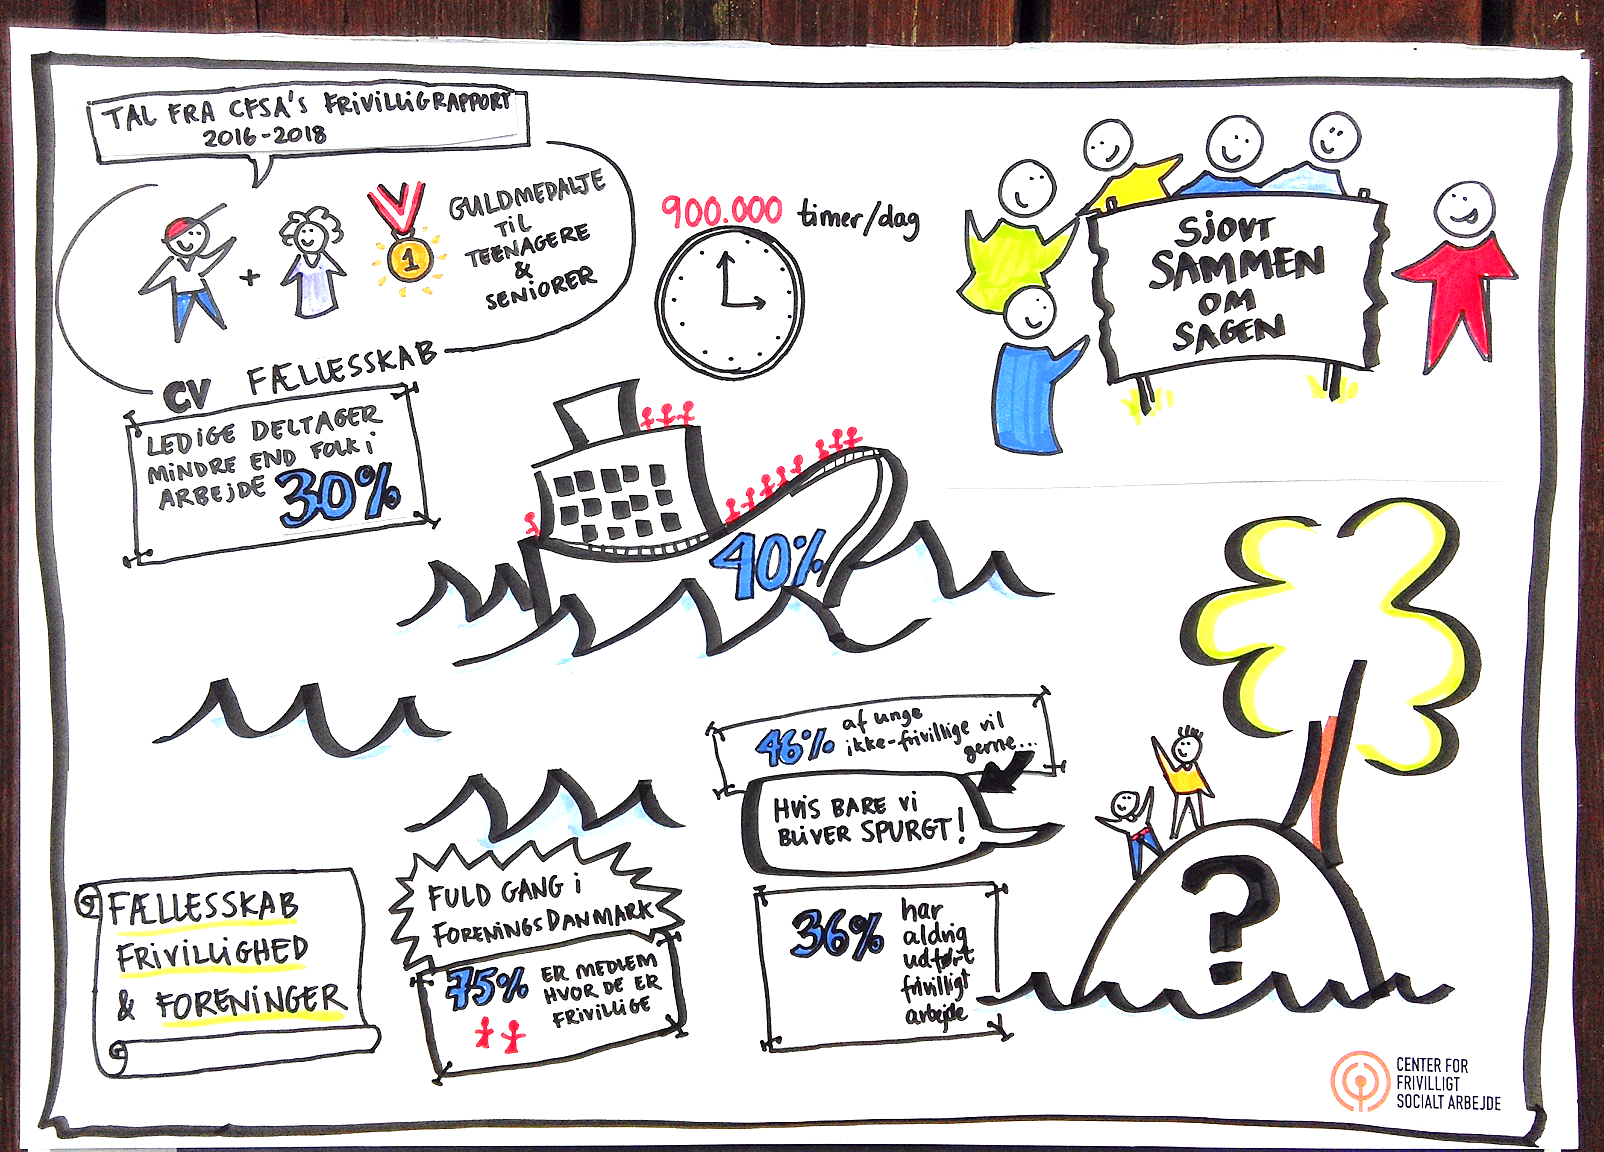 TAL FRA CFSA'S FRIVILLIGRAPPORT
2016-2018
1
GULDMEDALJE
TIL
TEENAGERE
&
SENIORER
900.000 timer/dag
SJOVT
SAMMEN
OM
SAGEN
CV FÆLLESSKAB
LEDIGE DELTAGER
MINDRE END FOLK I
ARBEJDE 30%
40%
46% af unge
ikke-frivillige vil
gerne...
HVIS BARE VI
BLIVER SPURGT!
?
FÆLLESSKAB
FRIVILLIGHED
& FORENINGER
FULD GANG I
FORENINGSDANMARK
75% ER MEDLEM
HVOR DE ER
FRIVILLIGE
36% har
aldrig
udført
frivilligt
arbejde
CENTER FOR
FRIVILLIGT
SOCIALT ARBEJDE